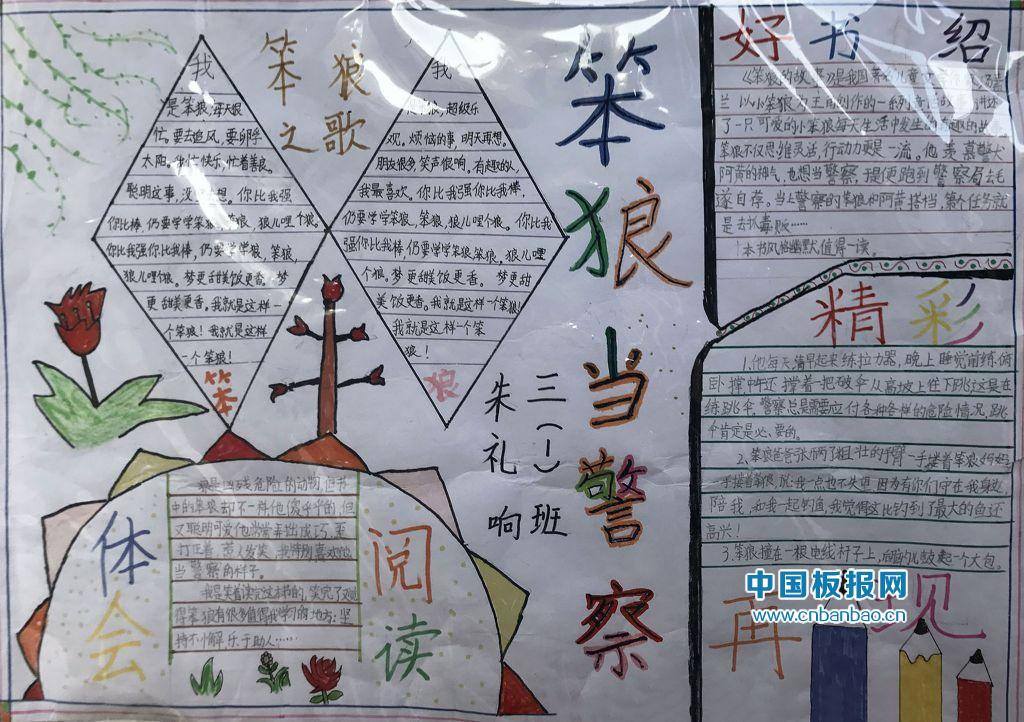 笨狼之歌
我
是笨狼,每天很
忙。要去追风,要孵
太阳。我忙快乐,忙着善良。
聪明这事,没想。你比我强
你比我棒,仍要学学笨狼,笨狼,狼儿哩个狼。
你比我强你比我棒,仍要学学狼,笨狼,
狼儿哩个狼。梦更甜美饭更香。梦
更甜美更香。我就是这样一
个笨狼!我就是这样
一个笨狼!
笨
我
笨狼,超级乐
观。烦恼的事,明天再想。
朋友很多,笑声很响。有趣的人,
我最喜欢。你比我强你比我棒,
仍要学学笨狼,笨狼,狼儿哩个狼。你比我
强你比我棒,仍要学学笨狼笨狼,狼儿哩
个狼。梦更甜美饭更香。梦更甜
美饭更香。我就是这样一个笨狼!
我就是这样一个笨
狼!
狼
笨狼当警察
三(1)班
朱礼响
好书绍
《笨狼的故事》是我国著名儿童
兰以小笨狼为主角创作的一系列
了一只可爱的小笨狼每天生活中发生的有趣的故
笨狼不仅思维灵活,行动力更是一流。他羡慕警犬
阿黄的神气,也想当警察,于是便跑到警察局去毛
遂自荐。当上警察的笨狼和阿黄搭档,第个任务就
是去扒毒贩……
本书风格幽默,值得一读。
精彩
1.他每天清早起来练拉力器,晚上睡觉前练俯
卧撑中午还撑着一把破伞从高坡上往下跳这是在
练跳伞。警察总是需要应付各种各样的危险情况,跳
伞肯定是必要的。
2、笨狼爸爸张开两只粗壮的手臂一手搂着笨狼妈妈
一手搂着笨狼,说:我一点也不失望。因为有你们守在我身边,
陪我,和我一起钓鱼,我觉得这比钓到了最大的鱼还
高兴!
3.笨狼撞在一根电线杆子上,脑门儿鼓起一个大包。
再见
中国板报网
www.cnbanbao.cn
体会
阅读
狼是凶残危险的动物,但书
中的笨狼却不一样他傻乎乎的,但
又聪明可爱他常常弄出成巧,歪
打正着,惹人发笑。我特别喜欢他
当警察的样子。
我是笑着读完这本书的,笑完了又觉
得笨狼有很多值得我学习的地方:坚
持不懈乐于助人……